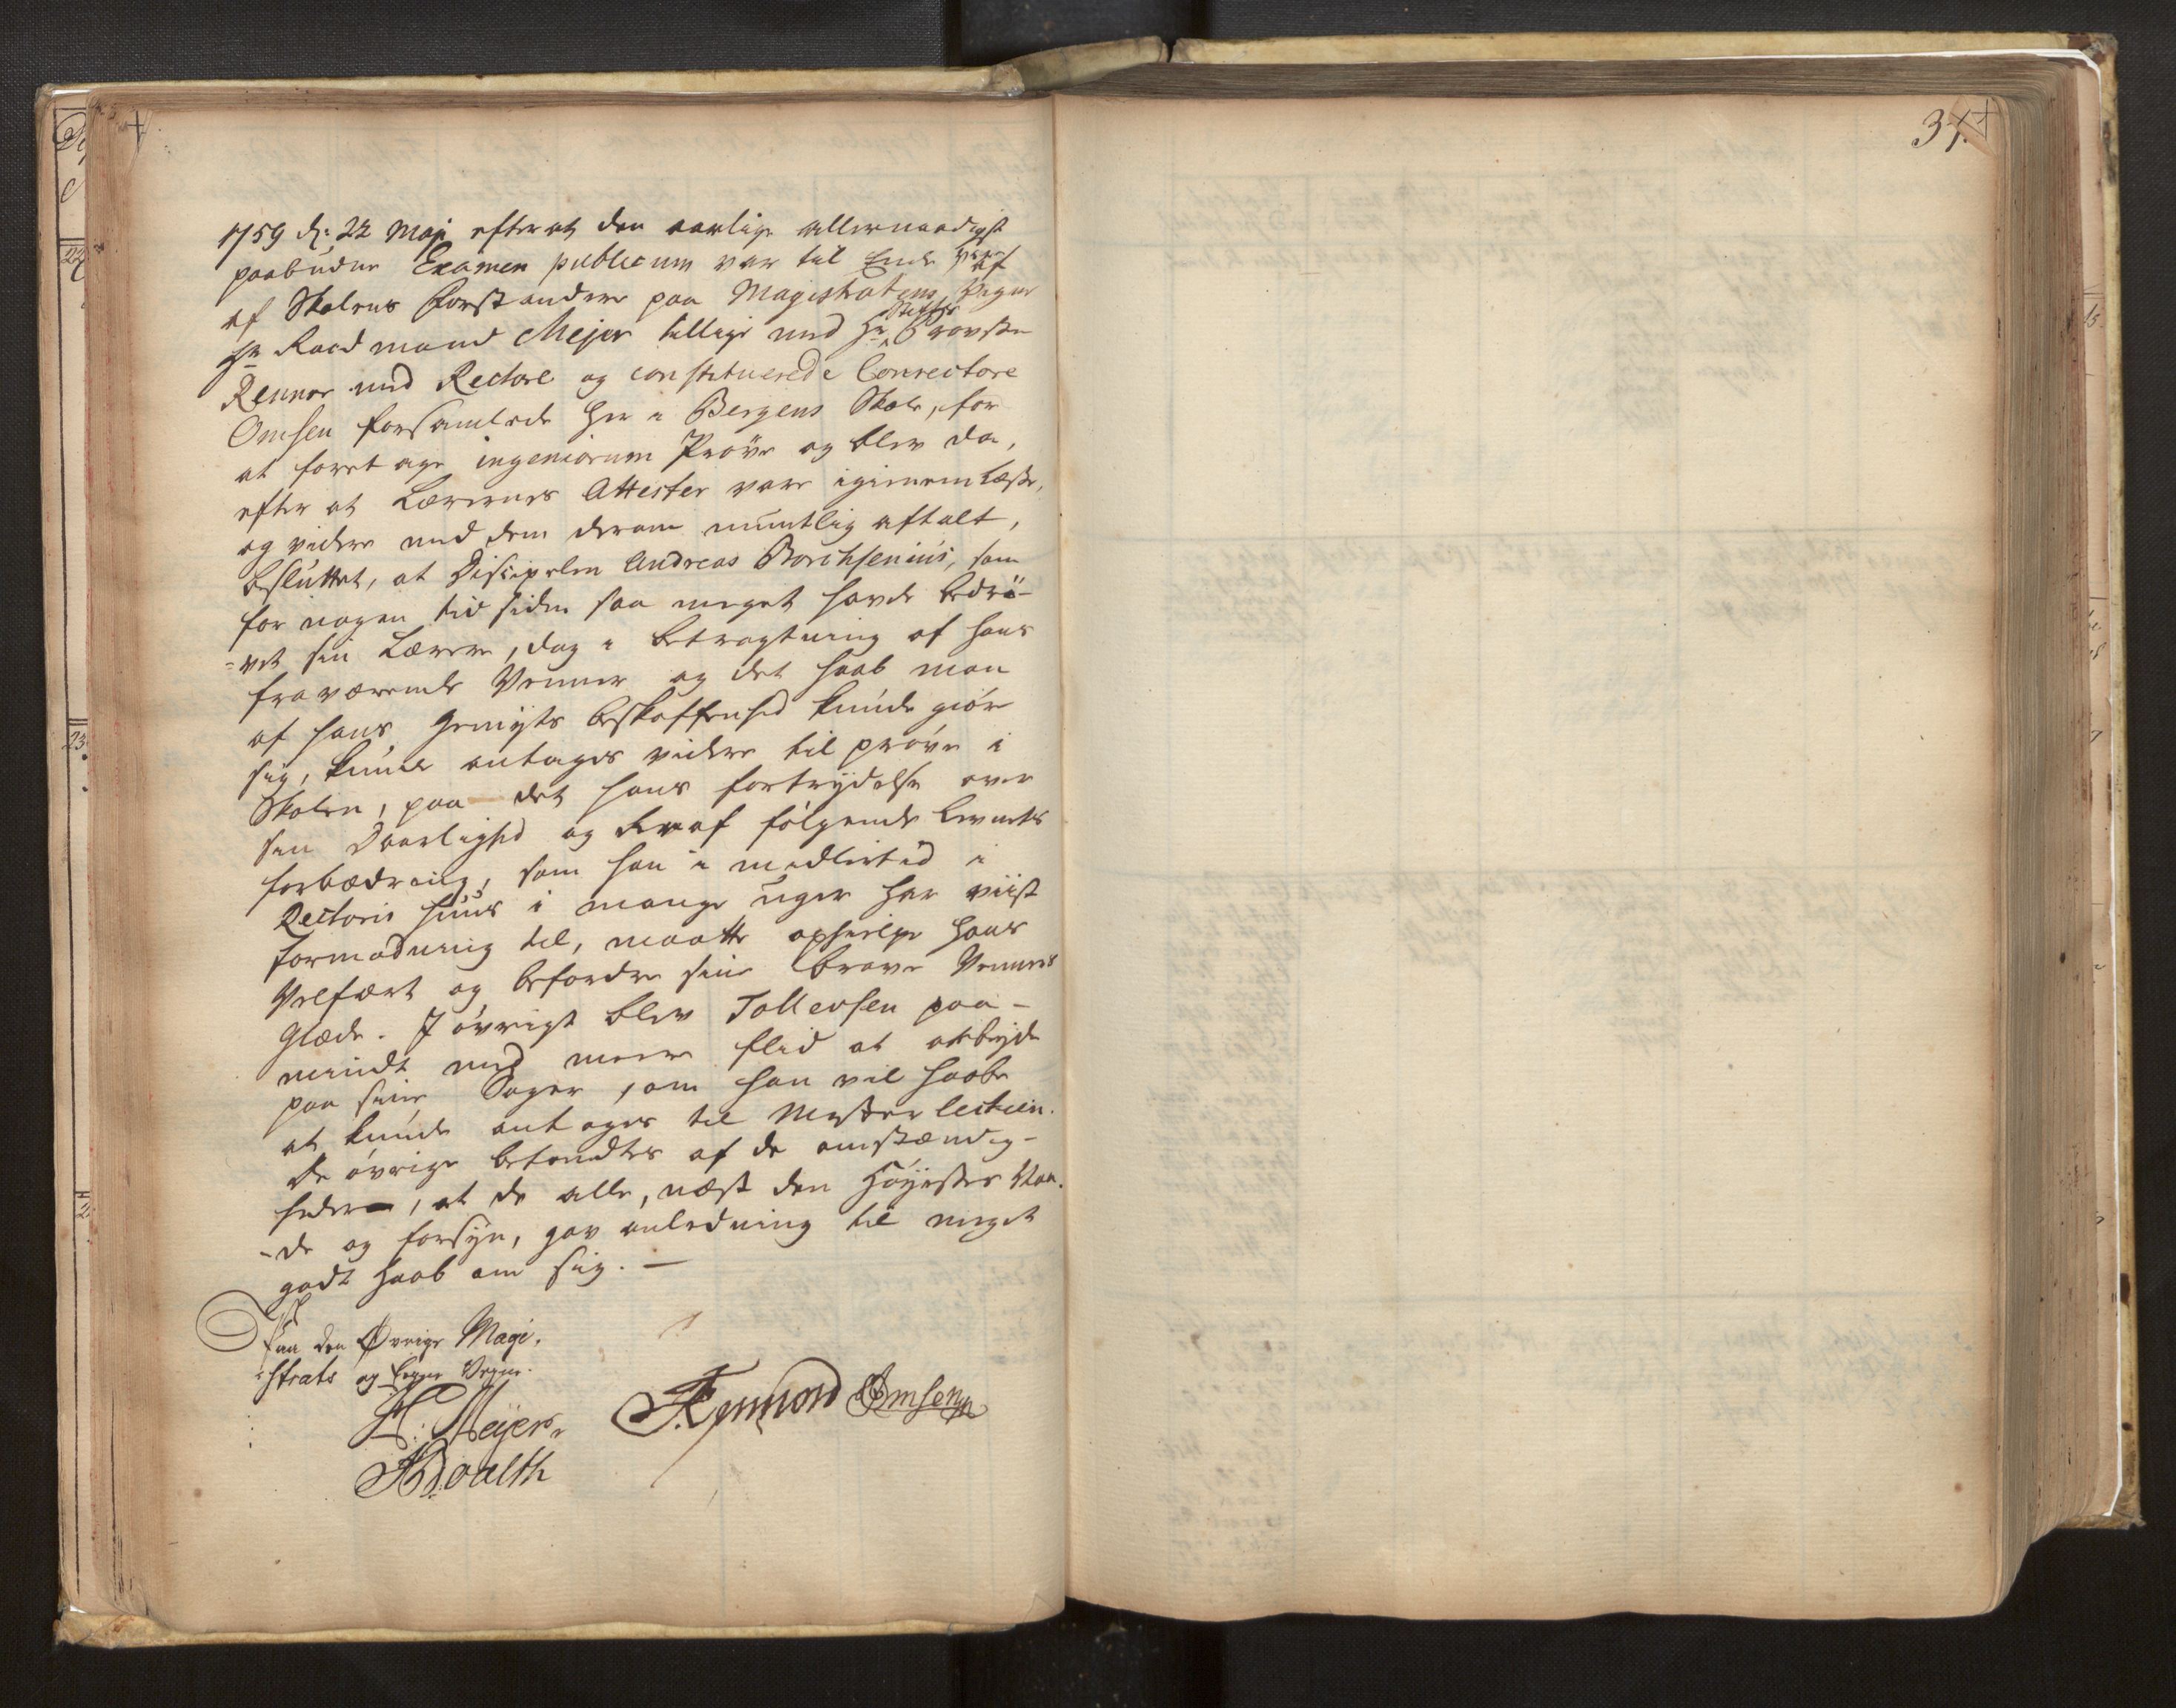 34.
1759 d: 22 Maji efter at den aarlige allernaadigst
paabudne Examen publicum var til Ende
af Skolens Forstandere paa Magistratens Vegne
Hr Raadmand Mejer tillige med Hr Stifts Provsten
Rennor med Rectore og constituerede Conrectore
Omsen forsamlede her i Bergens Skole, for
at foretage ingeniorum Prøve og blev da,
efter at Lærernes Attester vare igiennemlæste,
og videre med dem derom mundtlig aftalt,
besluttet, at Discipelen Andreas Borchsenius, som
for nogen tid siden saa meget havde bedrö-
-vet sin Lærere, dog i betragtning af hans
fraværende Venner og det haab man
af hans Gemyts beskaffenhed kunde giöre
sig, kunde antages videre til pröve i
Skolen, paa det hans fortrydelse over
sin Daarlighed og deraf fölgende Levnets
forbædring, som han i midlertid i
Rectoris huus i mange uger har viist
formodning til, maatte ophielpe hans
Velfært og befordre sine brave Venners
Glæde. I övrigt blev Tollevsen paa-
mindt med meere flid at arbeyde
paa sine Sager, om han vil haabe
at kunde antages til Mesterlectien.
De övrige befandtes af de omstændig-
heder, at de alle, næst den Höyestes Naa-
-de og forsyn, gav anledning til meget
godt haab om sig. —
Paa den Øvrige Magi-
-strats og Egne Vegne.
H: Meÿer.
Rennord Omsen